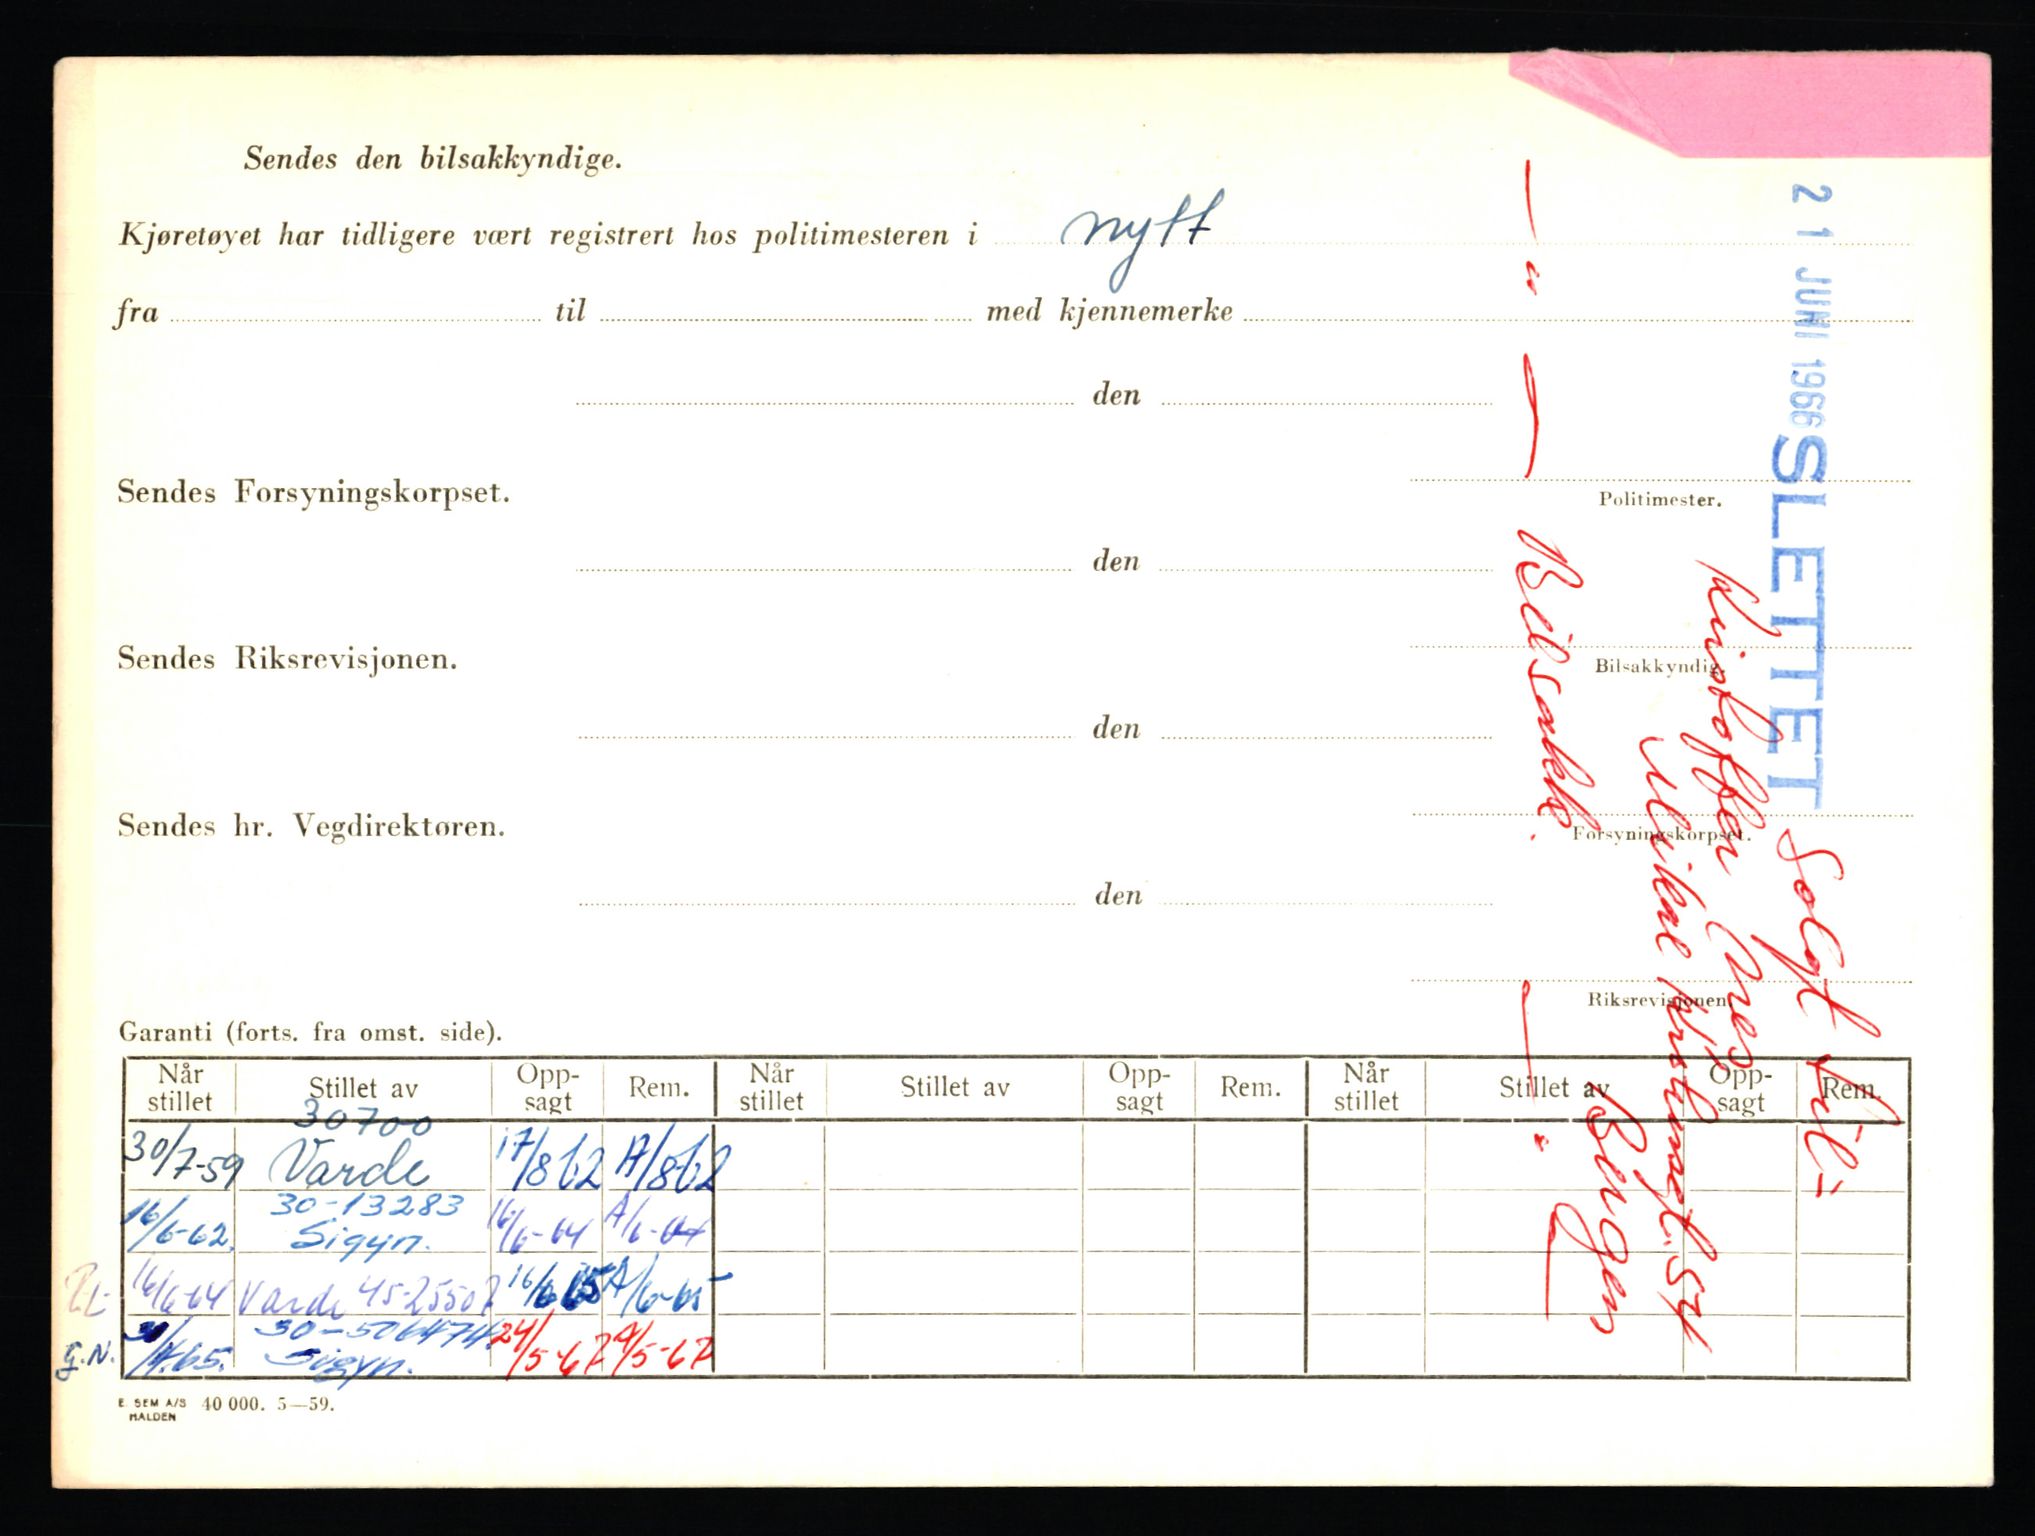 Sendes den bilsakkyndige.
Kjøretøyet har tidligere vært registrert hos politimesteren i nytt
fra til med kjennemerke
den
Politimester.
Sendes Forsyningskorpset.
den
Bilsakkyndig.
Sendes Riksrevisjonen.
den
Forsyningskorpset.
Sendes hr. Vegdirektøren.
den
Riksrevisjonen.
21 JUNI 1966 SLETTET
Solgt til:
Kristoffer
Bergen
Bilsakk.
Garanti (forts. fra omst. side).
Når stillet Stillet av Opp-sagt Rem. Når stillet Stillet av Opp-sagt Rem. Når stillet Stillet av Opp-sagt Rem.
30700
30/7-59 Varde 17/8 62 A/8-62
30-13283
16/6-62. Sigyn. 16/6-64 A/6-64
16/6-64 Varde 45-25507 16/6 65 A/6-65
30-506474
G.N. 30/ Sigyn. 24/5-67 A/5-67
E. SEM A/S HALDEN 40 000. 5—59.